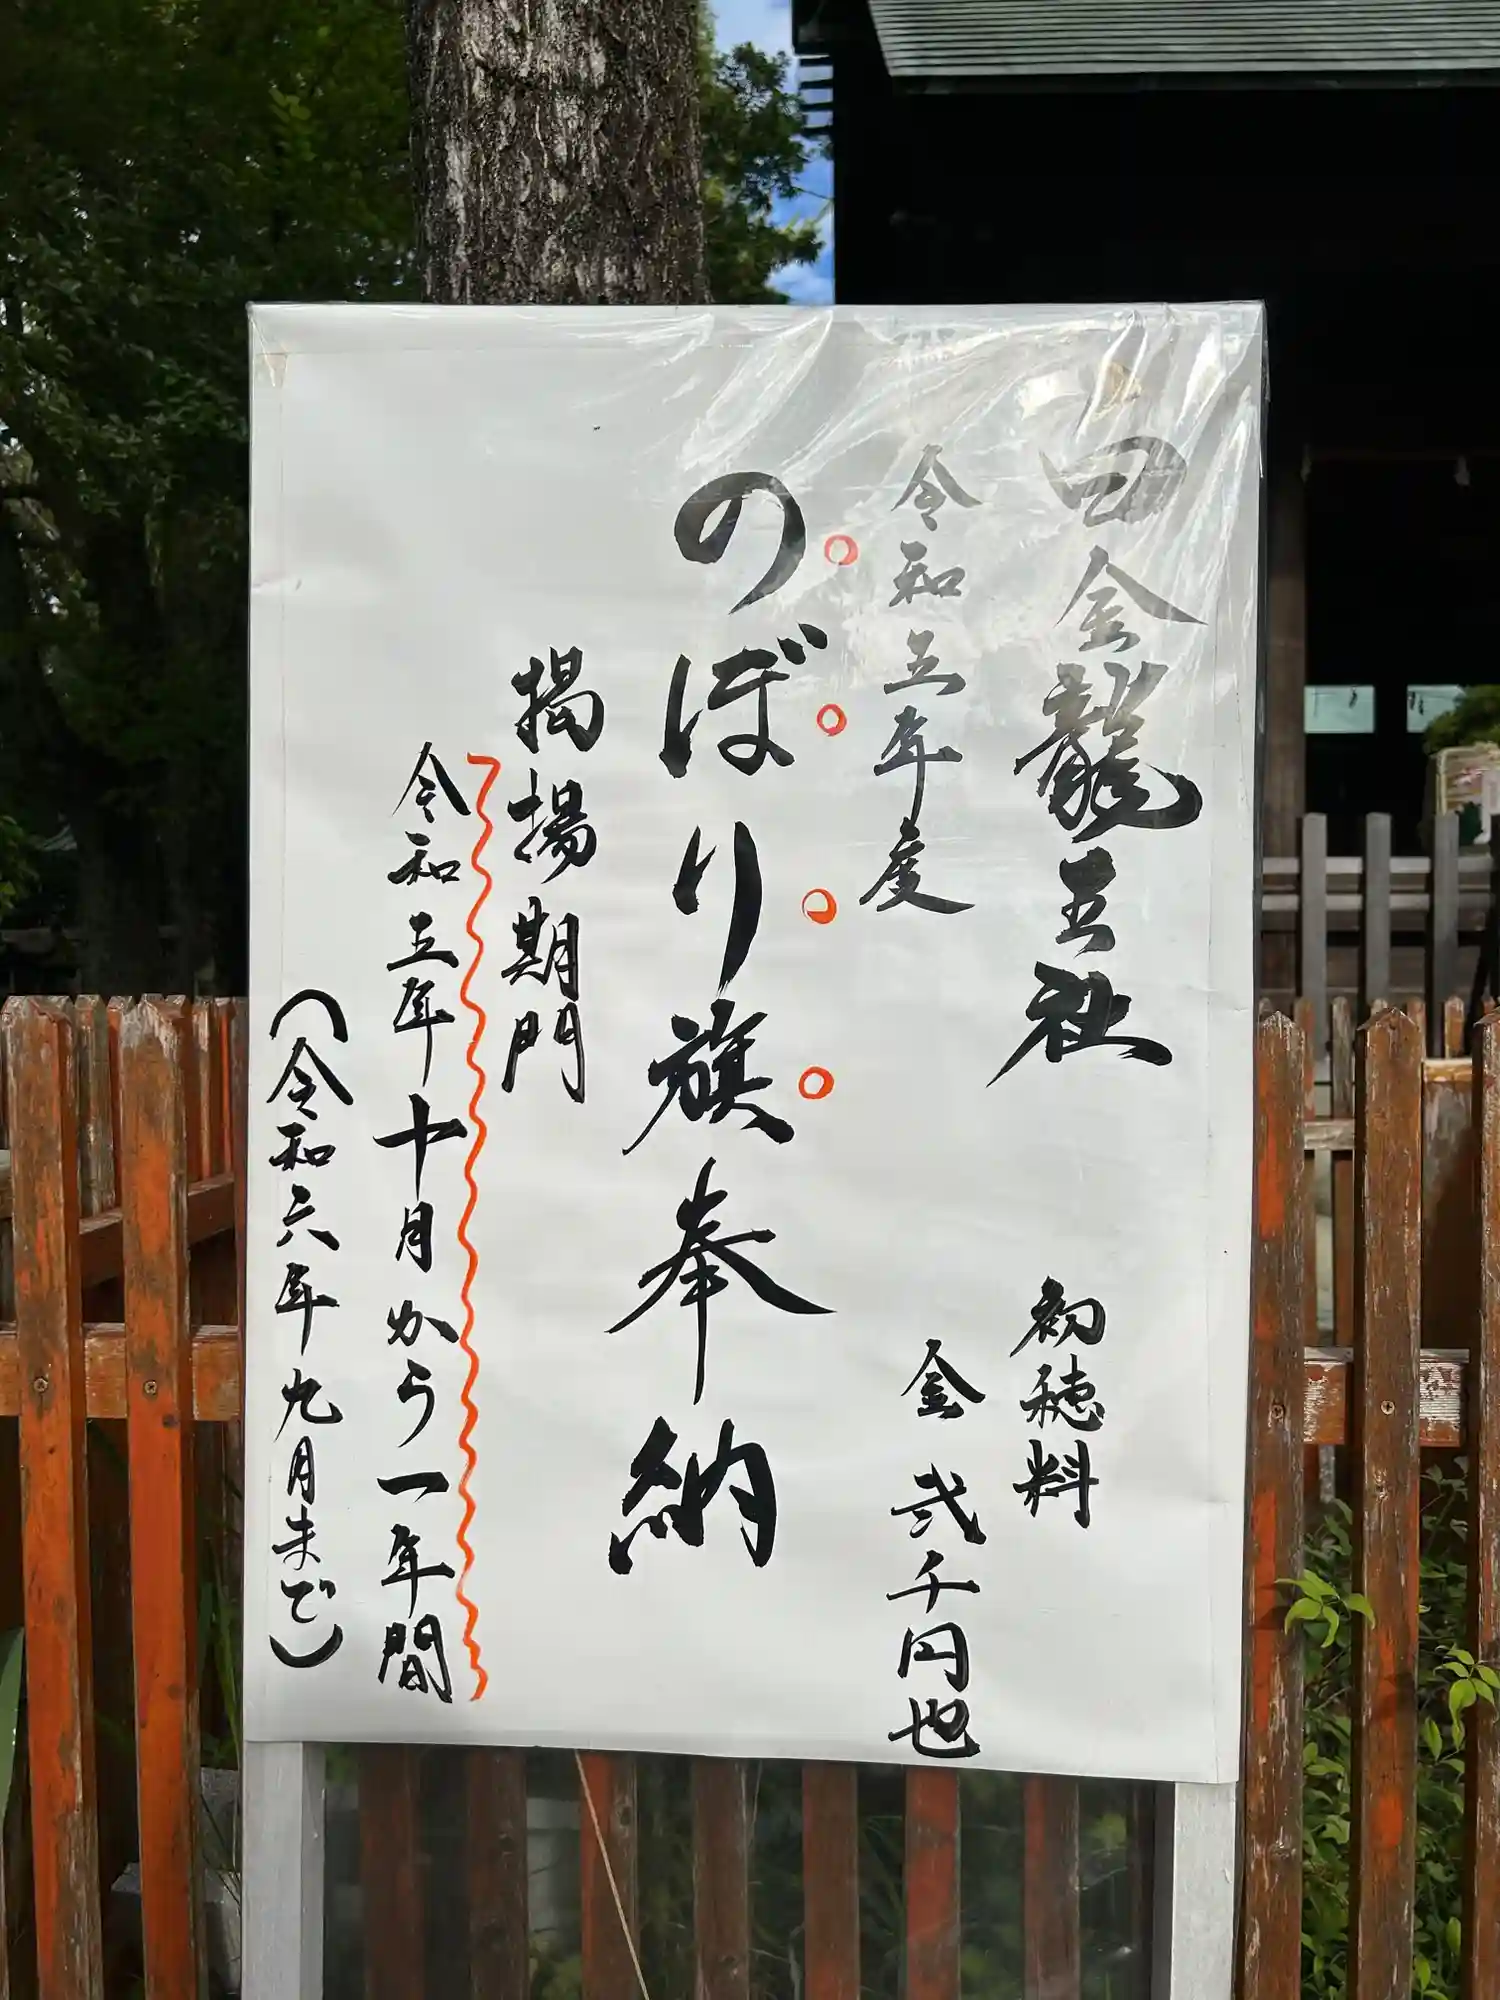 白金龍王社
令和五年度
のぼり旗奉納
初穂料
金 弐千円也
掲揚期間
令和五年十月から一年間
（令和六年九月まで）